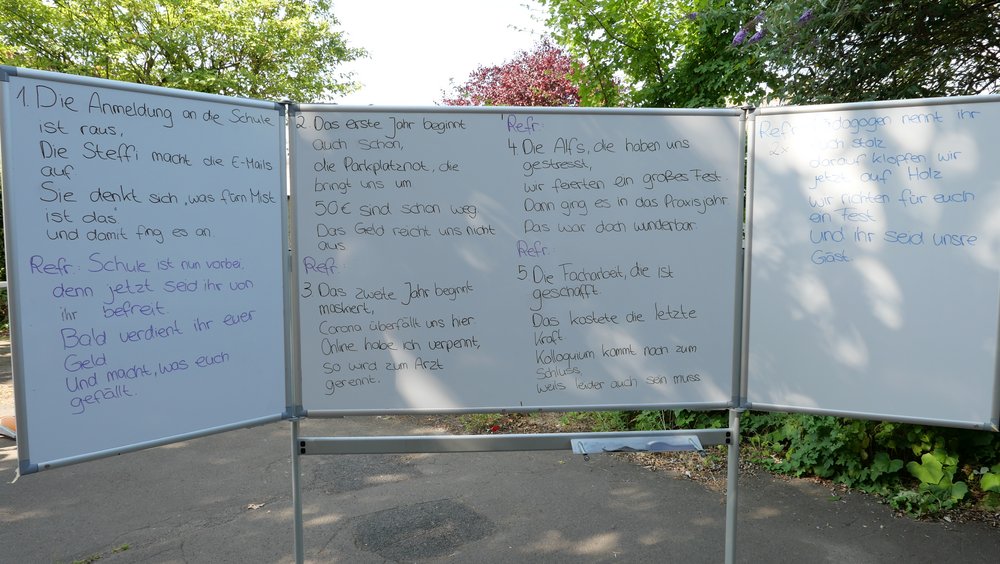 1. Die Anmeldung an die Schule
ist raus,
Die Steffi macht die E-Mails
auf
Sie denkt sich „was fürn Mist
ist das"
und damit fing es an.
Refr.: Schule ist nun vorbei,
denn jetzt seid ihr von
ihr befreit.
Bald verdient ihr euer
Geld
Und macht, was euch
gefällt.
2. Das erste Jahr beginnt
auch schon,
die Parkplatznot, die
bringt uns um
50€ sind schon weg
Das Geld reicht uns nicht
aus
Refr.:
3. Das zweite Jahr beginnt
maskiert,
Corona überfällt uns hier.
Online habe ich verpennt,
so wird zum Arzt
gerennt.
Refr.:
4. Die Alf's, die haben uns
gestresst,
wir feierten ein großes Fest.
Dann ging es in das Praxisjahr.
Das war doch wunderbar.
Refr.:
5. Die Facharbeit, die ist
geschafft.
Das kostete die letzte
Kraft
Kolloquium kommt noch zum
Schluss,
weils leider auch sein muss
Refr. Pädagogen nennt ihr
2x euch stolz
darauf klopfen wir
jetzt auf Holz
wir richten für euch
ein Fest
und ihr seid unsre
Gäst.